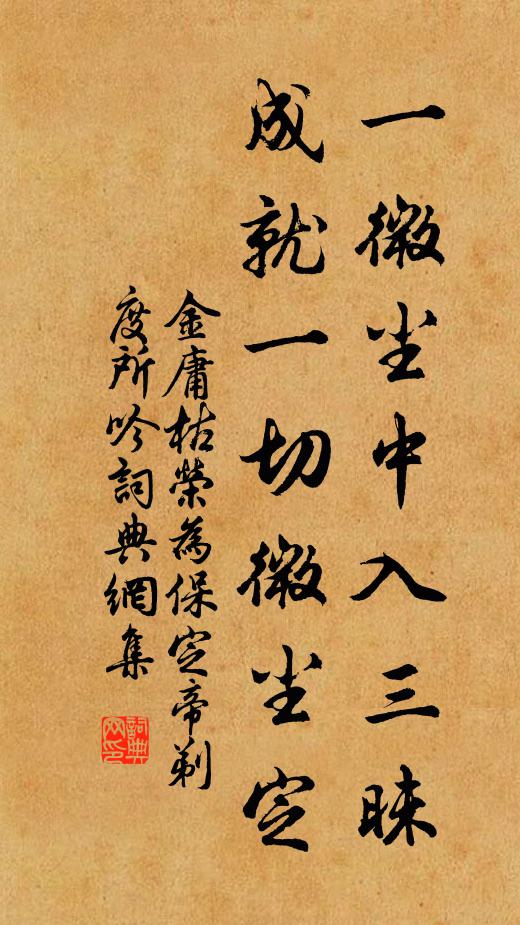 一微尘中入三昧
成就一切微尘定
金庸枯榮為保定帝剃
度所吟詞典網集
詞典
网印